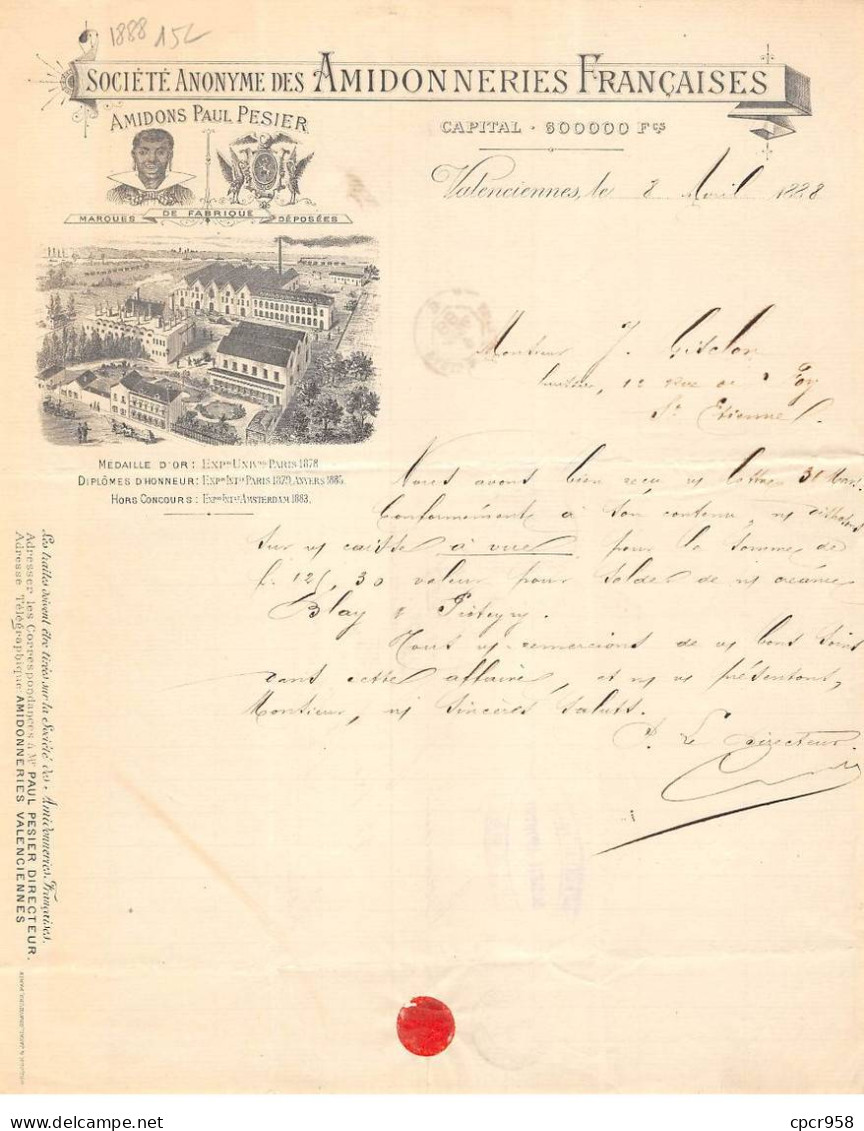 1888 15L
SOCIÉTÉ ANONYME DES AMIDONNERIES FRANÇAISES
AMIDONS PAUL PESIER
CAPITAL · 600000 Fcs
MARQUES DE FABRIQUE DÉPOSÉES
Valenciennes, le 2 Avril 1888
Monsieur J.
12 Rue de Foy
St Etienne
MÉDAILLE D'OR: EXPon UNIVlle PARIS 1878
DIPLÔMES D'HONNEUR: EXPon INTle PARIS 1879, ANVERS 1885.
HORS CONCOURS: EXPon INTle AMSTERDAM 1883.
Nous avons bien reçu v/ lettre 31 Mars.
Conformément à son contenu, n/
sur v/ caisse à vue pour la somme de
f. 121,30 valeur pour solde de n/ créance
Blay &
Nous v/ remercions de v/ bons soins
dans cette affaire, et n/ v/ présentons,
Monsieur, n/ sincères saluts.
P. Le Directeur
Les traites doivent être tirées sur la Société des Amidonneries Françaises.
Adresser les Correspondances à Mr PAUL PESIER DIRECTEUR.
Adresse Télégraphique AMIDONNERIES VALENCIENNES
cpcr958